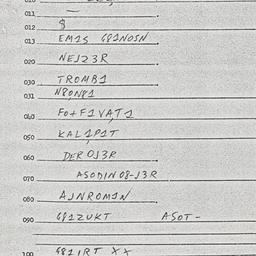 011 —
012 8
013 EM1S 681NOSN
020 NEJ23R
030 TROMB1
031 N8ON81
040 FO+F1VAT1
050 KAL1P1T
060 DER OJ3R
070 ASODIN08-J3R
080 AJNROM1N
090 681ZUKT ASOT-
100 681IRT XX